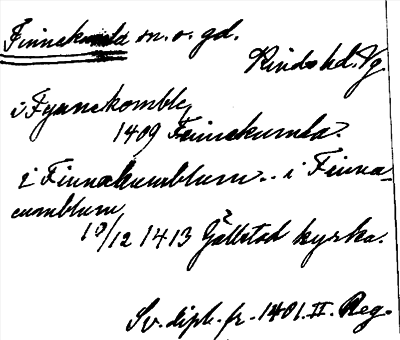 Finnekumla sn. o. gd.
Kinds hd. Vg.
i Fynnekomble
1409 Finnekumla.
i Finnakumblum .. i Finna-
cumblum
10/12 1413 Gällstad kyrka.
Sv. dipl. fr. 1401. II. Reg.